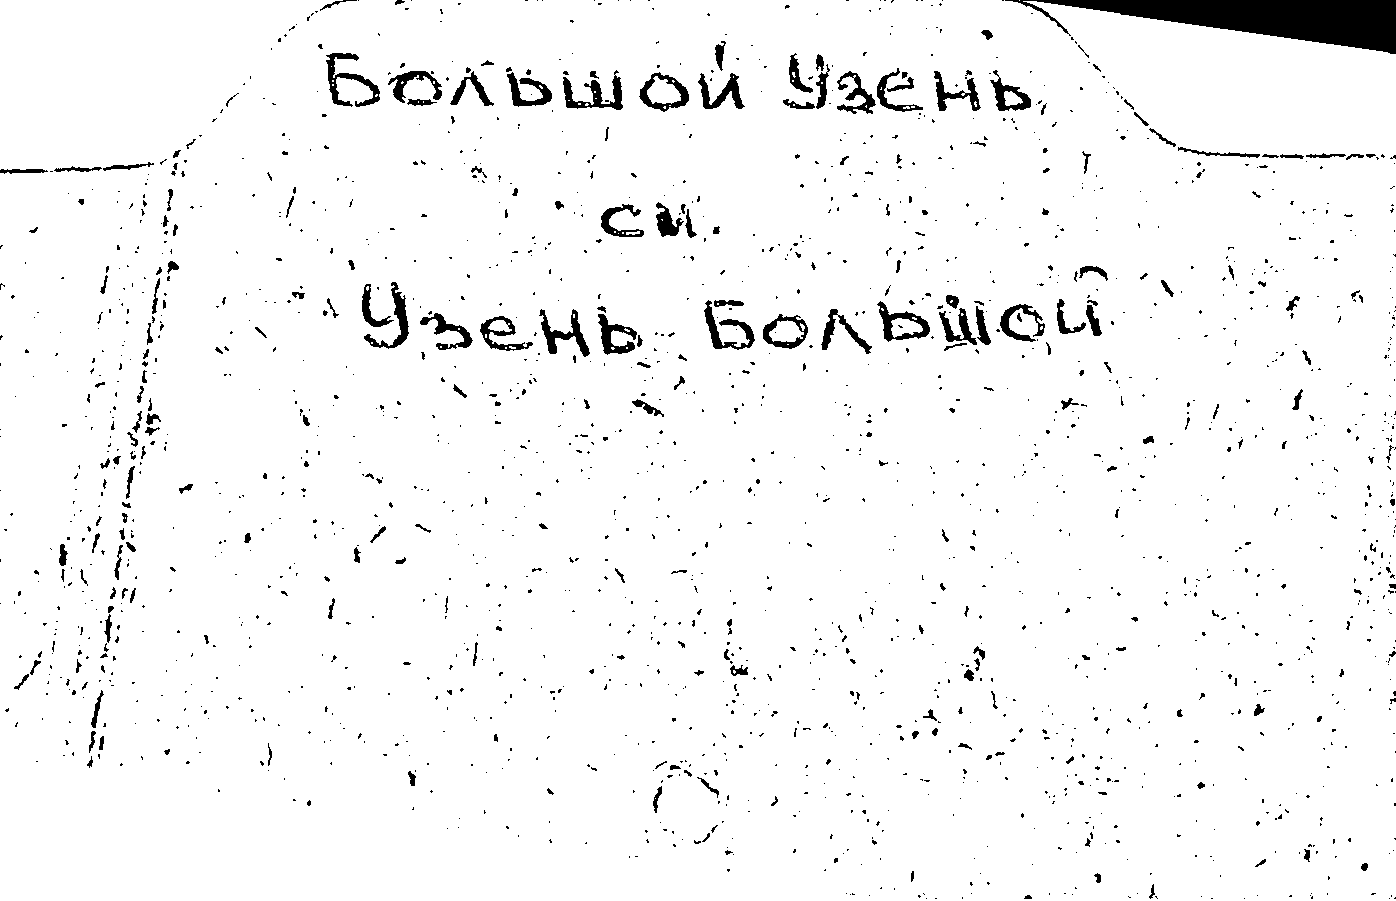 Большой Узень
см.
Узень Большой